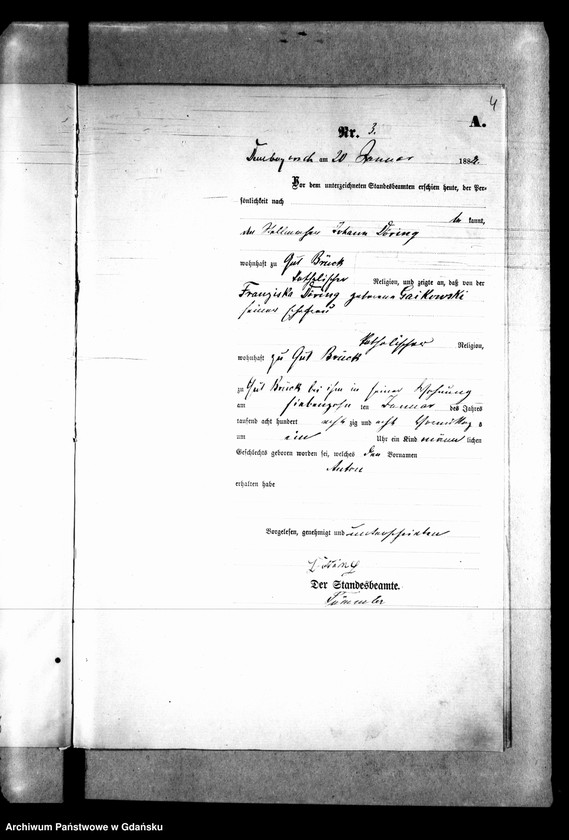 4
A.
Nr. 3.
am 20 Januar 188
Vor dem unterzeichneten Standesbeamten erschien heute, der Per-
sönlichkeit nach
be kannt,
der Johann Döring
wohnhaft zu Gut Brück
katholischer Religion, und zeigte an, daß von der
Franziska Döring geborene Gaikowski
seiner Ehefrau
katholischer Religion,
wohnhaft zu Gut Brück
zu Gut Brück bei ihm in seiner Wohnung
am siebenzehn ten Januar des Jahres
tausend acht hundert acht zig und acht Vormittag s
um ein Uhr ein Kind männ lichen
Geschlechts geboren worden sei, welches den Vornamen
Anton
erhalten habe
Vorgelesen, genehmigt und unterschrieben
Döring
Der Standesbeamte.
Archiwum Państwowe w Gdańsku